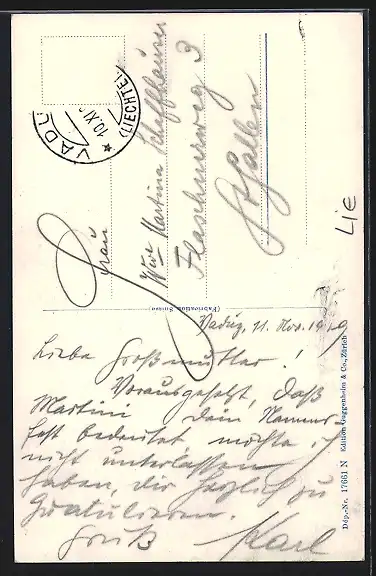 VADUZ
10.XI
(LIECHTE
Frau
Wwe Martina Schaffhauser
Flaschnerweg 3
St Gallen
LIE
(Fabrication Suisse)
Vaduz, 11. Nov. 19
Liebe Großmutter!
Vorausgesetzt, daß
Martini dein Namens-
fest bedeutet möchte ich
nicht unterlassen
haben, dir herzlich zu
gratulieren.
Gruß Karl
Dép.-Nr. 17661 N Edition Guggenheim & Co., Zürich